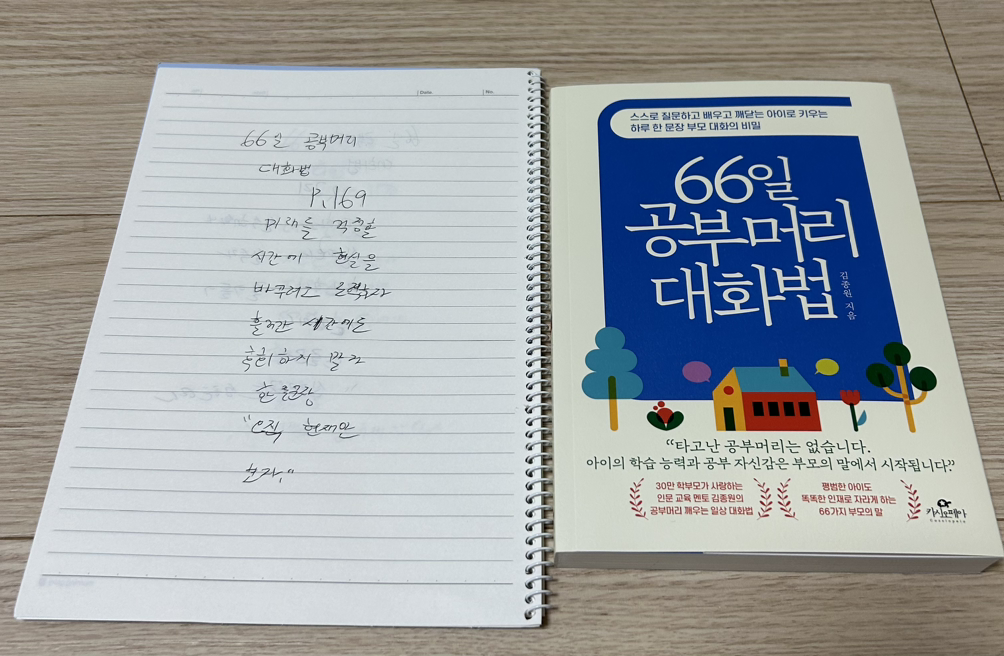 Date
No.
66일 공부머리
대화법
P.169
미래를 걱정할
시간에 현실을
바꾸려고 노력하자
흘러간 시간에도
하지 말자
한 문장
"오직 현재만
보자."
스스로 질문하고 배우고 깨닫는 아이로 키우는
하루 한 문장 부모 대화의 비밀
66일
공부머리
대화법
김종원 지음
“타고난 공부머리는 없습니다.
아이의 학습 능력과 공부 자신감은 부모의 말에서 시작됩니다.”
30만 학부모가 사랑하는
인문 교육 멘토 김종원의
공부머리 깨우는 일상 대화법
평범한 아이도
똑똑한 인재로 자라게 하는
66가지 부모의 말
카시오페아
Cassiopeia